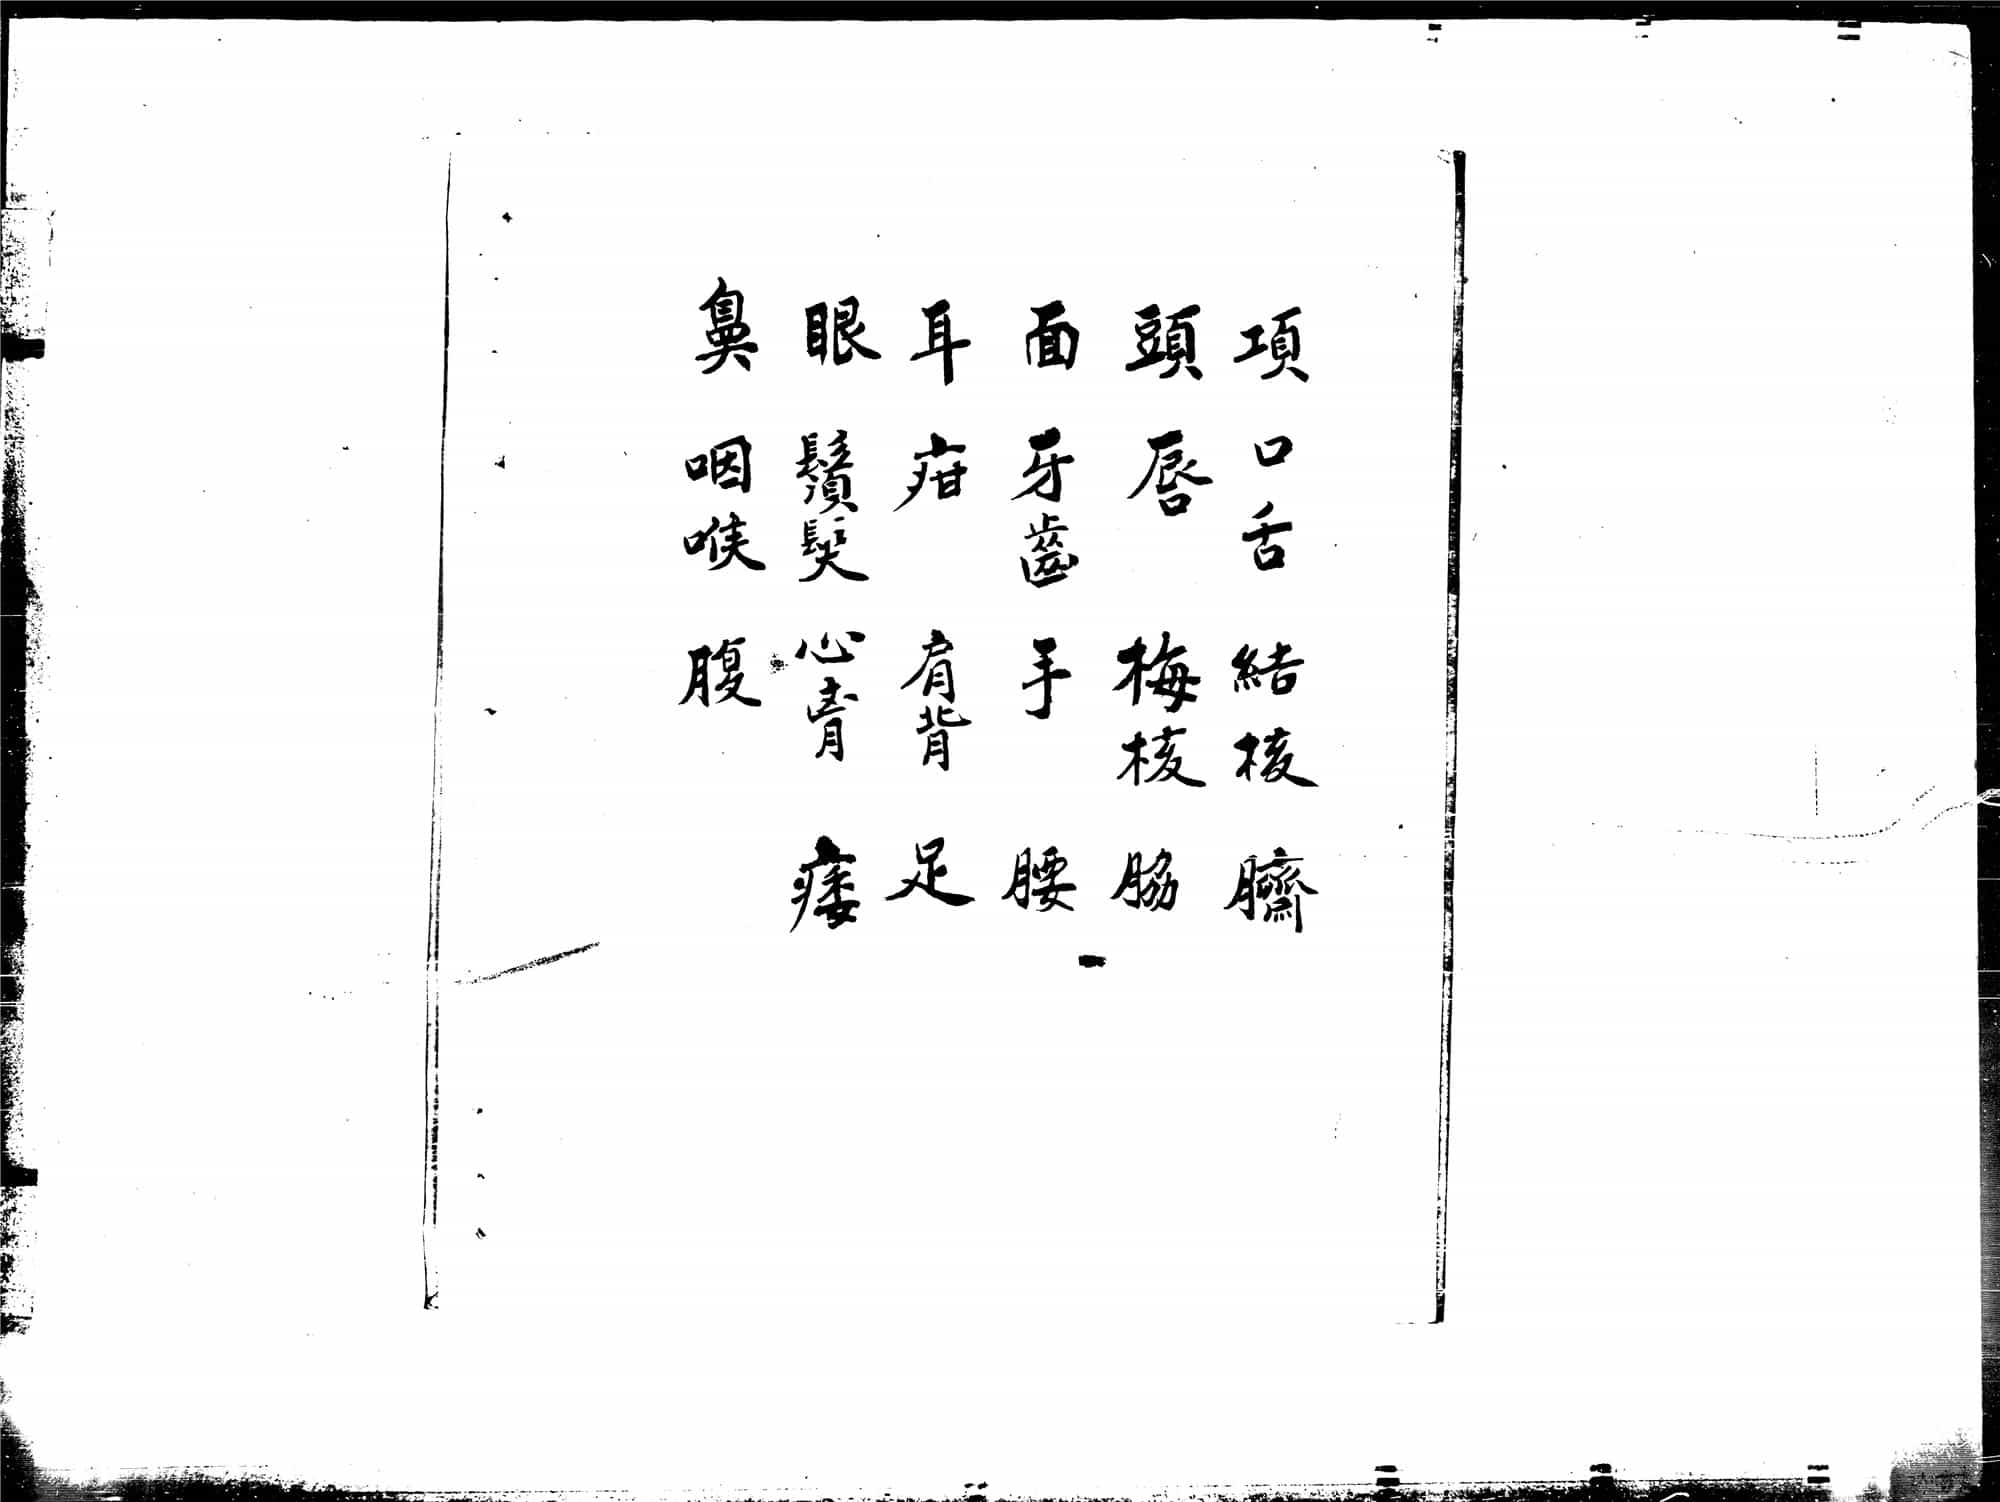 項 口舌 結核 臍
頭 唇 梅核 脇
面 牙齒 手 腰
耳 疳 肩背 足
眼 鬚髮 心 痿
鼻 咽喉 腹